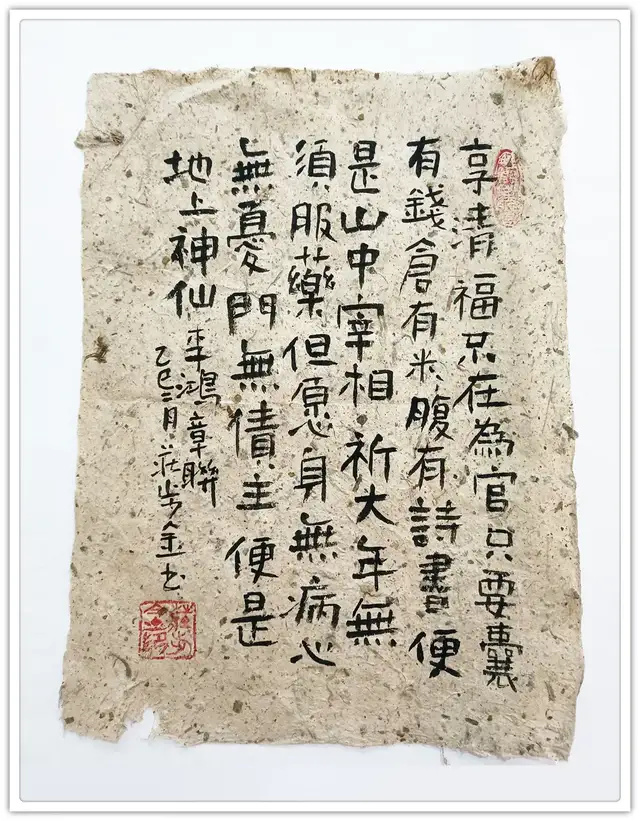 享清福不在為官只要囊
有錢倉有米腹有詩書便
是山中宰相祈大年無
須服藥但愿身無病心
無憂門無債主便是
地上神仙
李鴻章聯
乙巳二月莊步金书